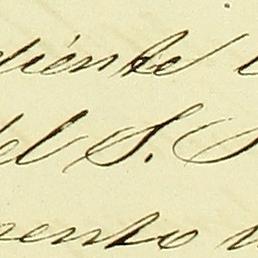 diente
del S. S
mento